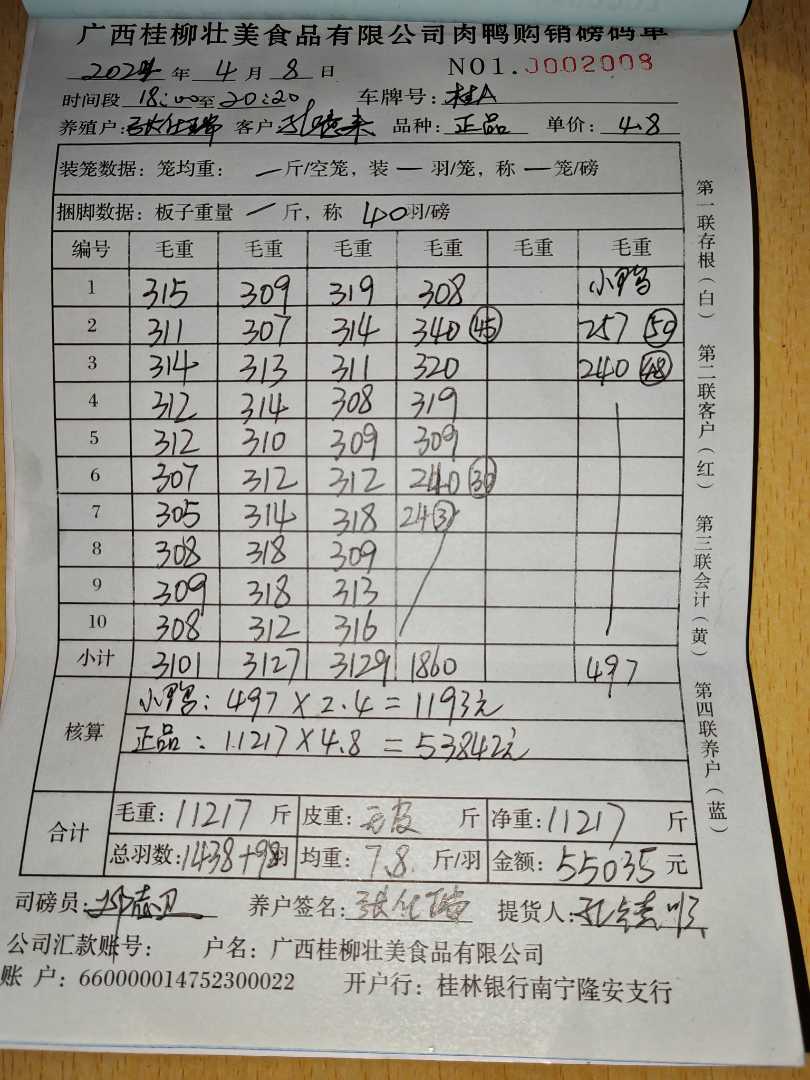 广西桂柳壮美食品有限公司肉鸭购销磅码单
2024 年 4 月 8 日 NO1.J002008
时间段 18:00至20:20 车牌号: 桂A
养殖户: 客户: 品种: 正品 单价: 4.8
装笼数据: 笼均重: 一 斤/空笼, 装 一 羽/笼, 称 一 笼/磅
捆脚数据: 板子重量 一 斤, 称 40羽/磅
编号 毛重 毛重 毛重 毛重 毛重 毛重
1 315 309 319 308 小鸭
2 311 307 314 340 (45) 257 (50)
3 314 313 311 320 240 (48)
4 312 314 308 319
5 312 310 309 309
6 307 312 312 240 (30)
7 305 314 318 24 (3)
8 308 318 309
9 309 318 313
10 308 312 316
小计 3101 3127 3129 1860 497
核算
小鸭: 497 X 2.4 = 1193元
正品: 11217 X 4.8 = 53842元
合计
毛重: 11217 斤 皮重: 斤 净重: 11217 斤
总羽数: 1438+98羽 均重: 7.8 斤/羽 金额: 55035 元
司磅员: 养户签名: 提货人:
公司汇款账号: 户名: 广西桂柳壮美食品有限公司
账 户: 660000014752300022 开户行: 桂林银行南宁隆安支行
第一联存根(白) 第二联客户(红) 第三联会计(黄) 第四联养户(蓝)